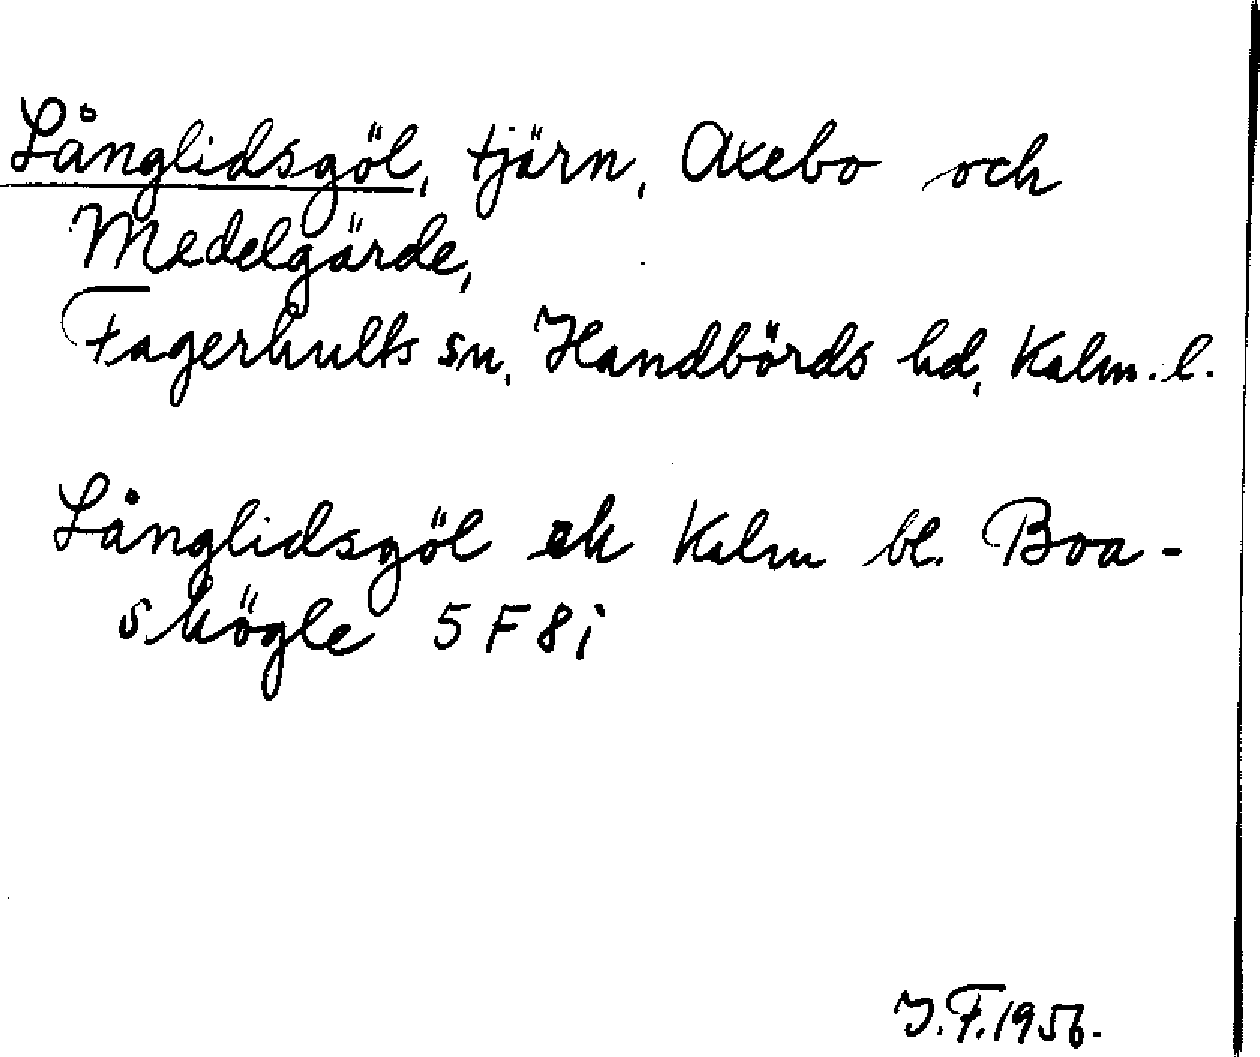 Långlidsgöl, tjärn, Axebo och
Medelgärde,
Fagerhults sn, Handbörds hd, Kalm. l.
Långlidsgöl ek Kalm bl. Boa-
skögle 5 F 8 i
J.F. 1956.